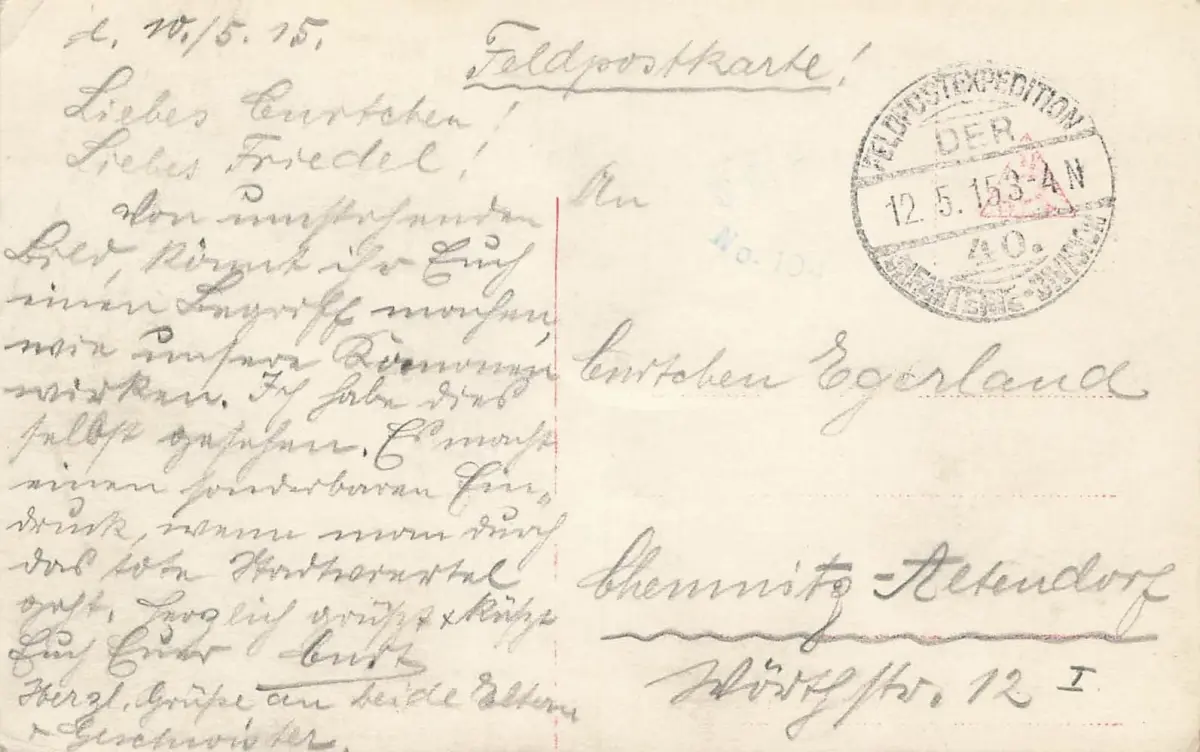 d. 10./5. 15.
Feldpostkarte!
Liebes Curtchen!
Liebes Friedel!
Von umstehenden
Bild, könnt ihr Euch
einen Begriff machen,
wie unsere Kanonen
wirken. Ich habe dies
selbst gesehen. Es macht
einen sonderbaren Ein-
druck, wenn man durch
das tote Stadtviertel
geht. Herzlich grüßt + küßt
Euch Euer Curt
Herzl. Grüße an beide Eltern
+ Geschwister.
FELDPOSTEXPEDITION
DER
12.5.15 3-4 N
40.
INFANTERIE-DIVISION
An
Curtchen Egerland
Chemnitz-Altendorf
Wörthstr. 12 I